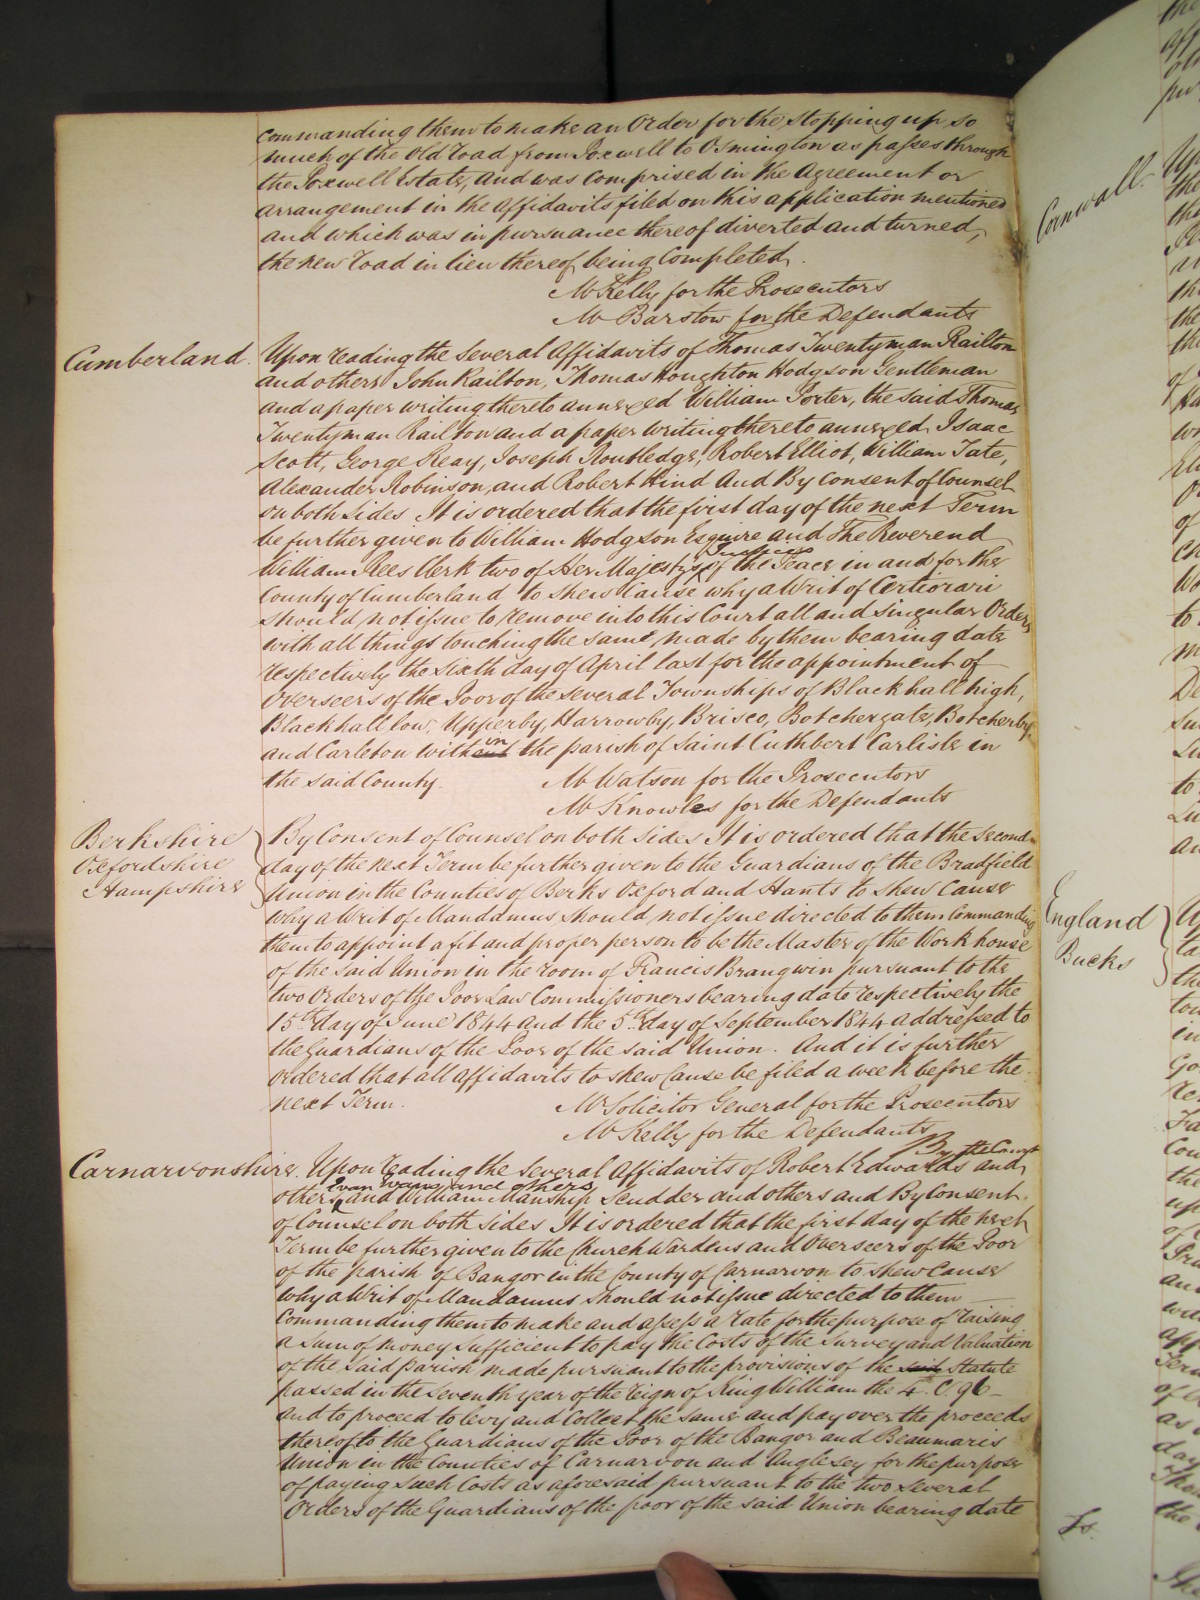 commanding them to make an Order for the stopping up so
much of the old road from Poxwell to Osmington as passes through
the Poxwell Estate, and was comprised in the Agreement or
arrangement in the affidavits filed on this application mentioned
and which was in pursuance thereof diverted and turned,
the new road in lieu thereof being completed.
Mr Kelly for the Prosecutors
Mr Barstow for the Defendants
Cumberland. Upon reading the several Affidavits of Thomas Twentyman Railton
and others John Railton, Thomas Houghton Hodgson Gentleman
and a paper writing thereto annexed William Porter, the said Thomas
Twentyman Railton and a paper writing thereto annexed, Isaac
Scott, George Reay, Joseph Routledge, Robert Elliot, William Tate,
Alexander Robinson, and Robert Hind And By Consent of Counsel
on both sides It is ordered that the first day of the next Term
be further given to William Hodgson Esquire and The Reverend
William Rees Clerk two of Her Majesty's Justices of the Peace in and for the
County of Cumberland to shew Cause why a Writ of Certiorari
should not issue to remove into this Court all and singular Orders
with all things touching the same, made by them bearing date
respectively the sixth day of April last for the appointment of
Overseers of the Poor of the several Townships of Blackhall high,
Blackhall low, Upperby, Harrowby, Brisco, Botchergate, Botcherby
and Carleton within the parish of Saint Cuthbert Carlisle in
the said County.
Mr Watson for the Prosecutors
Mr Knowles for the Defendants
Berkshire
Oxfordshire
Hampshire
By Consent of Counsel on both sides It is ordered that the second
day of the next Term be further given to the Guardians of the Bradfield
Union in the Counties of Berks Oxford and Hants to shew cause
why a Writ of Mandamus should not issue directed to them Commanding
them to appoint a fit and proper person to be the Master of the Work house
of the said Union in the room of Francis Brangwin pursuant to the
two Orders of the Poor Law Commissioners bearing date respectively the
15th day of June 1844 and the 5th day of September 1844 addressed to
the Guardians of the Poor of the said Union. And it is further
ordered that all affidavits to shew Cause be filed a week before the
next Term.
Mr Solicitor General for the Prosecutors
Mr Kelly for the Defendants
By the Court
Carnarvonshire. Upon reading the several Affidavits of Robert Edwards and
others, Evan Evans and others, and William Manship Scudder and others and By Consent
of Counsel on both sides It is ordered that the first day of the next
Term be further given to the Church Wardens and Overseers of the Poor
of the parish of Bangor in the County of Carnarvon to shew Cause
why a Writ of Mandamus should not issue directed to them
Commanding them to make and assess a rate for the purpose of raising
a sum of money sufficient to pay the Costs of the survey and Valuation
of the said parish made pursuant to the provisions of the said Statute
passed in the seventh year of the reign of King William the 4th C. 96
and to proceed to levy and Collect the same and pay over the proceeds
thereof to the Guardians of the Poor of the Bangor and Beaumaris
Union in the Counties of Carnarvon and Anglesey for the purpose
of paying such Costs as aforesaid pursuant to the two several
Orders of the Guardians of the poor of the said Union bearing date
Cornwall.
England
Bucks